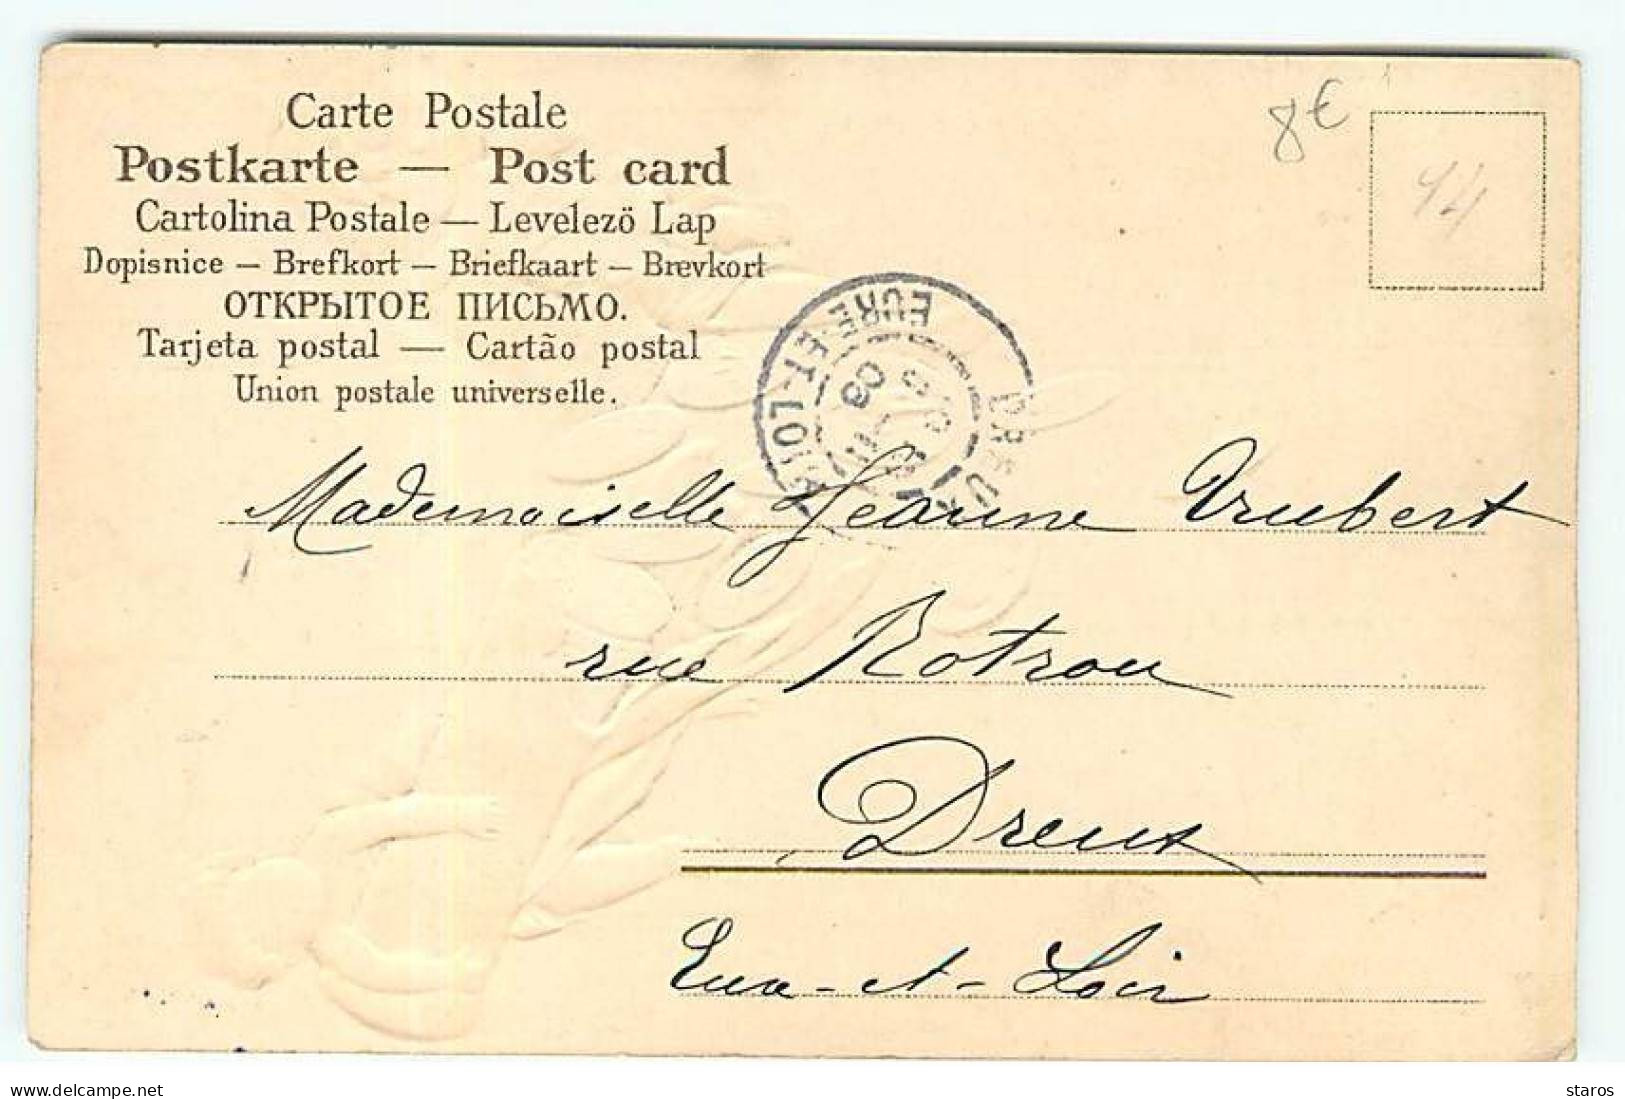 Carte Postale
Postkarte — Post card
Cartolina Postale — Levelezö Lap
Dopisnice — Brefkort — Briefkaart — Brevkort
ОТКРЫТОЕ ПИСЬМО.
Tarjeta postal — Cartão postal
Union postale universelle.
8€
14
DREUX
EURE-ET-LOIR
03
Mademoiselle Jeanne Vrubert
rue Rotrou
Dreux
Eure-et-Loir
delcampe.net
staros